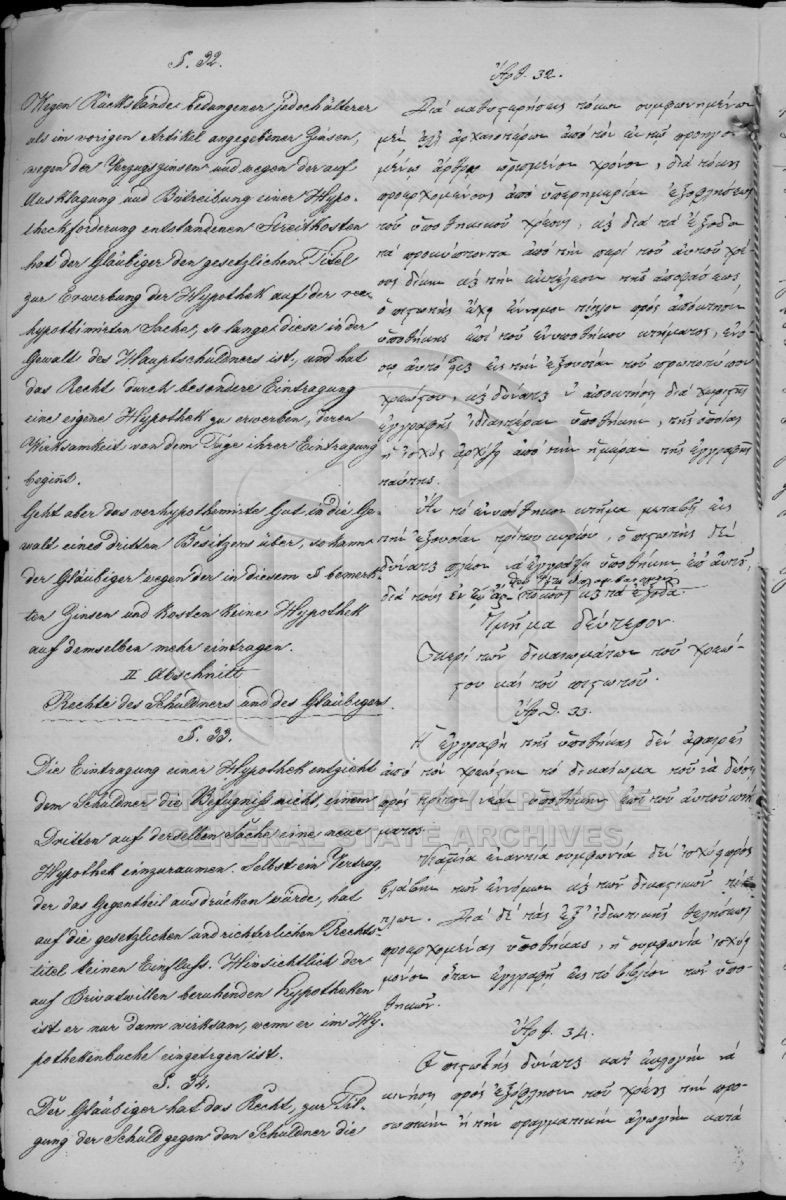 §. 32.
Wegen Rückstände bedungener jedoch älterer
als im vorigen Artikel angegebener Zinsen,
wegen der Verzugszinsen und wegen der auf
Ausklagung und Beitreibung einer Hypo-
theckforderung entstandenen Streitkosten
hat der Gläubiger den gesetzlichen Titel
zur Erwerbung der Hypothek auf der ver-
hypothimirten Sache, so lange diese in der
Gewalt des Hauptschuldners ist, und hat
das Recht durch besondere Eintragung
eine eigene Hypothek zu erwerben, deren
Wirksamkeit von dem Tage ihrer Eintragung
begiñt.
Geht aber das verhypothimirte Gut in die Ge-
walt eines dritten Besitzers über, so kann
der Gläubiger wegen der in diesem § bemerk-
ten Zinsen und Kosten keine Hypothek
auf demselben mehr eintragen.
II Abschnitt
Rechte des Schuldners und des Gläubigers.
§. 33.
Die Eintragung einer Hypothek entzieht
dem Schuldner die Befugniß nicht, einem
Dritten auf derselben Sache eine neue
Hypothek einzuraumen. Selbst ein Vertrag,
der das Gegentheil ausdrücken würde, hat
auf die gesetzlichen und richterlichen Rechts-
titel keinen Einfluß. Hinsichtlich der
auf Privatwillen beruhenden Hypotheken
ist er nur dann wirksam, wenn er im Hy-
pothekenbuche eingetragen ist.
§. 34.
Der Gläubiger hat das Recht, zur Til-
gung der Schuld gegen den Schuldner die
Ἄρθ. 32.
Διὰ καθυστερήσεις τόκων συμφωνημένων
μὲν ἀρχαιοτέρων ἀπὸ τὸν ἐν τῷ προηγου
μένῳ ἄρθρῳ ὡρισμένον χρόνον, διὰ τόκους
προερχομένους ἀπὸ ὑπερημερίαν ἐξοφλήσεως
τοῦ ὑποθηκικοῦ χρέους, καὶ διὰ τὰ ἔξοδα
τὰ προκύπτοντα ἀπὸ τὴν περὶ τοῦ αὐτοῦ χρέ
ους δίκην καὶ τὴν ἐκτέλεσιν τῆς ἀποφάσεως
ὁ πιστωτὴς ἔχει ἔννομον τίτλον πρὸς ἀπόκτησιν
ὑποθήκης ἐπὶ τοῦ ἐνυποθήκου κτήματος, ἐνό-
σῳ αὐτὸ εἰς τὴν ἐξουσίαν τοῦ πρωτοτύπου
χρεώστου, καὶ δύναται ν' ἀποκτήσῃ διὰ χωριστῆς
ἐγγραφῆς ἰδιαιτέραν ὑποθήκην, τῆς ὁποίας
ἡ ἰσχὺς ἀρχίζει ἀπὸ τὴν ἡμέραν τῆς ἐγγραφῆς
ταύτης.
Ἂν τὸ ἐνυπόθηκον κτῆμα μεταβῇ εἰς
τὴν ἐξουσίαν τρίτου κυρίου, ὁ πιστωτὴς δὲν
δύναται πλέον νὰ ἐγγράψῃ ὑποθήκην ἐπ' αὐτοῦ,
διὰ τοὺς ἐν τόκους καὶ τὰ ἔξοδα.
Τμῆμα δεύτερον.
Περὶ τῶν δικαιωμάτων τοῦ χρεώ-
στου καὶ τοῦ πιστωτοῦ.
Ἄρθ. 33.
Ἡ ἐγγραφὴ τῆς ὑποθήκης δὲν ἀφαιρεῖ
ἀπὸ τὸν χρεώστην τὸ δικαίωμα τοῦ νὰ δώσῃ
πρὸς τρίτον νέαν ὑποθήκην ἐπὶ τοῦ αὐτοῦ κτή
ματος.
Καμμία ἐναντία συμφωνία δὲν ἰσχύει πρὸς
βλάβην τῶν ἐννόμων καὶ τῶν δικαστικῶν τί-
τλων. Διὰ δὲ τὰς ἐξ ἰδιωτικῆς θελήσεως
προερχομένας ὑποθήκας, ἡ συμφωνία ἰσχύει
μόνον ὅταν ἐγγραφῇ εἰς τὸ βιβλίον τῶν ὑπο-
θηκῶν.
Ἄρθ. 34.
Ὁ πιστωτὴς δύναται κατ' ἐκλογὴν νὰ
κινήσῃ πρὸς ἐξόφλησιν τοῦ χρέους τὴν προ-
σωπικὴν ἢ τὴν πραγματικὴν ἀγωγὴν κατὰ
ΓΕΝΙΚΑ ΑΡΧΕΙΑ ΤΟΥ ΚΡΑΤΟΥΣ
GENERAL STATE ARCHIVES